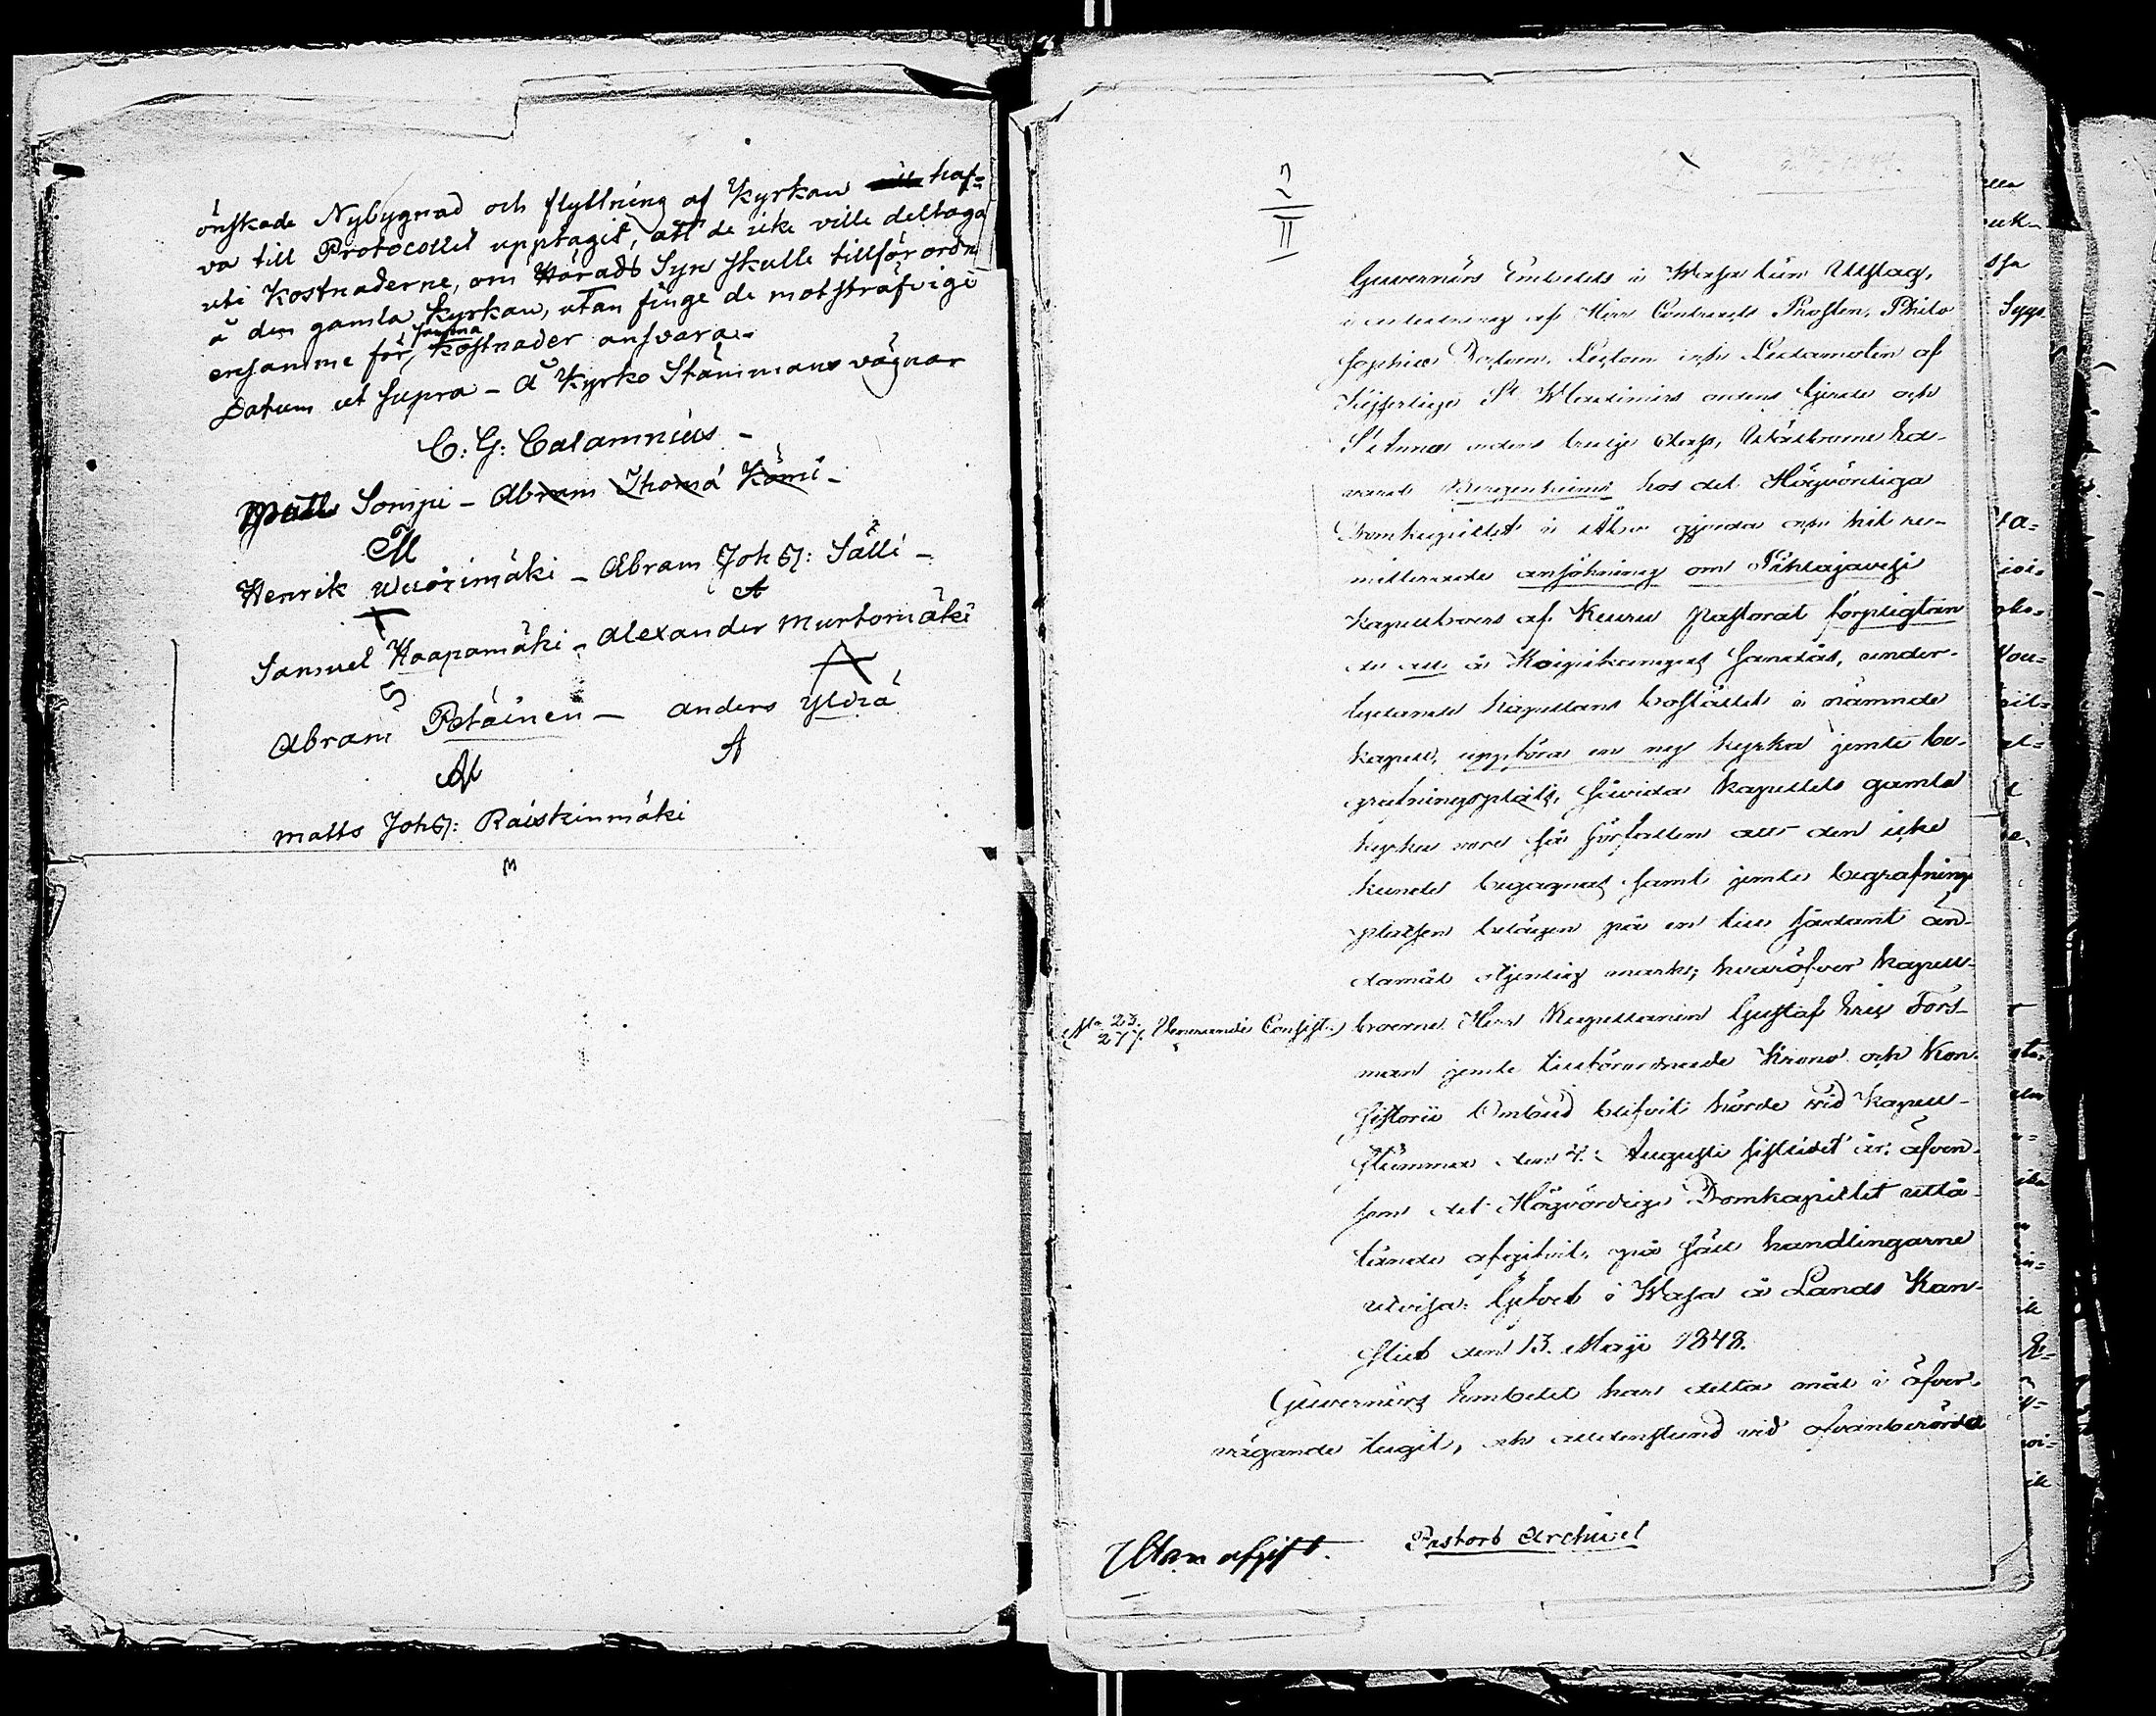 önskade Nybygnad och flyttning af Kyrkan haf=
va till Protocollet upptagit, att de icke ville deltaga
uti Kostnaderne, om Härads Syn skulle tillförordn
å den gamla Kyrkan, utan finge de motsträfvige
ensamme för samma Kostnader ansvara.
Datum ut supra - å Kyrko Stämmans vägnar
C: G: Calamnius -
Matts Sompi - Abram Thomä Kömi -
M
Henrik Wuorimäki - Abram Johs: Sälli -
A
Samuel Haapamäki - Alexander Murtomäki
S
Abram Petäinen - Anders Yldrä
A
Matts Johs: Raiskinmäki
M
2
II
Guvernörs Embetets i Wasa län Utslag,
i anledning af Herr Contracts Prosten, Philo
sophiæ Doctorn, Lectorn och Ledamoten af
Kejserliga St Wladimirs ordens fjerde och
St Annæ ordens tredje Class, Välborne
Bergenheims hos det Högvördiga
Domkapitlet i Åbo gjorda och hit re-
mitterade ansökning om Pihlajavesi
Kapellboers af Keuru Pastorat förpligtan
de att å Koipikangas sandås, under-
lydande Kapellans bostället i nämnde
Kapell, uppföra en ny kyrka jemte be-
grafningsplats, såvida Kapellets gamla
kyrka vore så förfallen att den icke
kunde begagnas samt jemte begrafnings
platsen belägen på en till sådant än-
damål otjenlig mark; hvaröfver Kapell-
boerne Herr Kapellanen Gustaf Eric Fors-
man jemte tillförordnade Krono och Kon-
sistorii Ombud blifvit hörde vid Kapell-
stämma den 4. Augusti sistledet år, äfven-
som det Högvördiga Domkapitlet utlå-
tande afgifvit, på sätt handlingarne
utvisa. Gifvet i Wasa å Lands Kan-
sliet den 13. Maji 1848.
Guvernörs Embetet har detta mål i öfver-
vägande tagit, och alldenstund vid ofvanberörda
No 23.
277. Venerande Consist.
Utan afgift.
Pastors Archivet